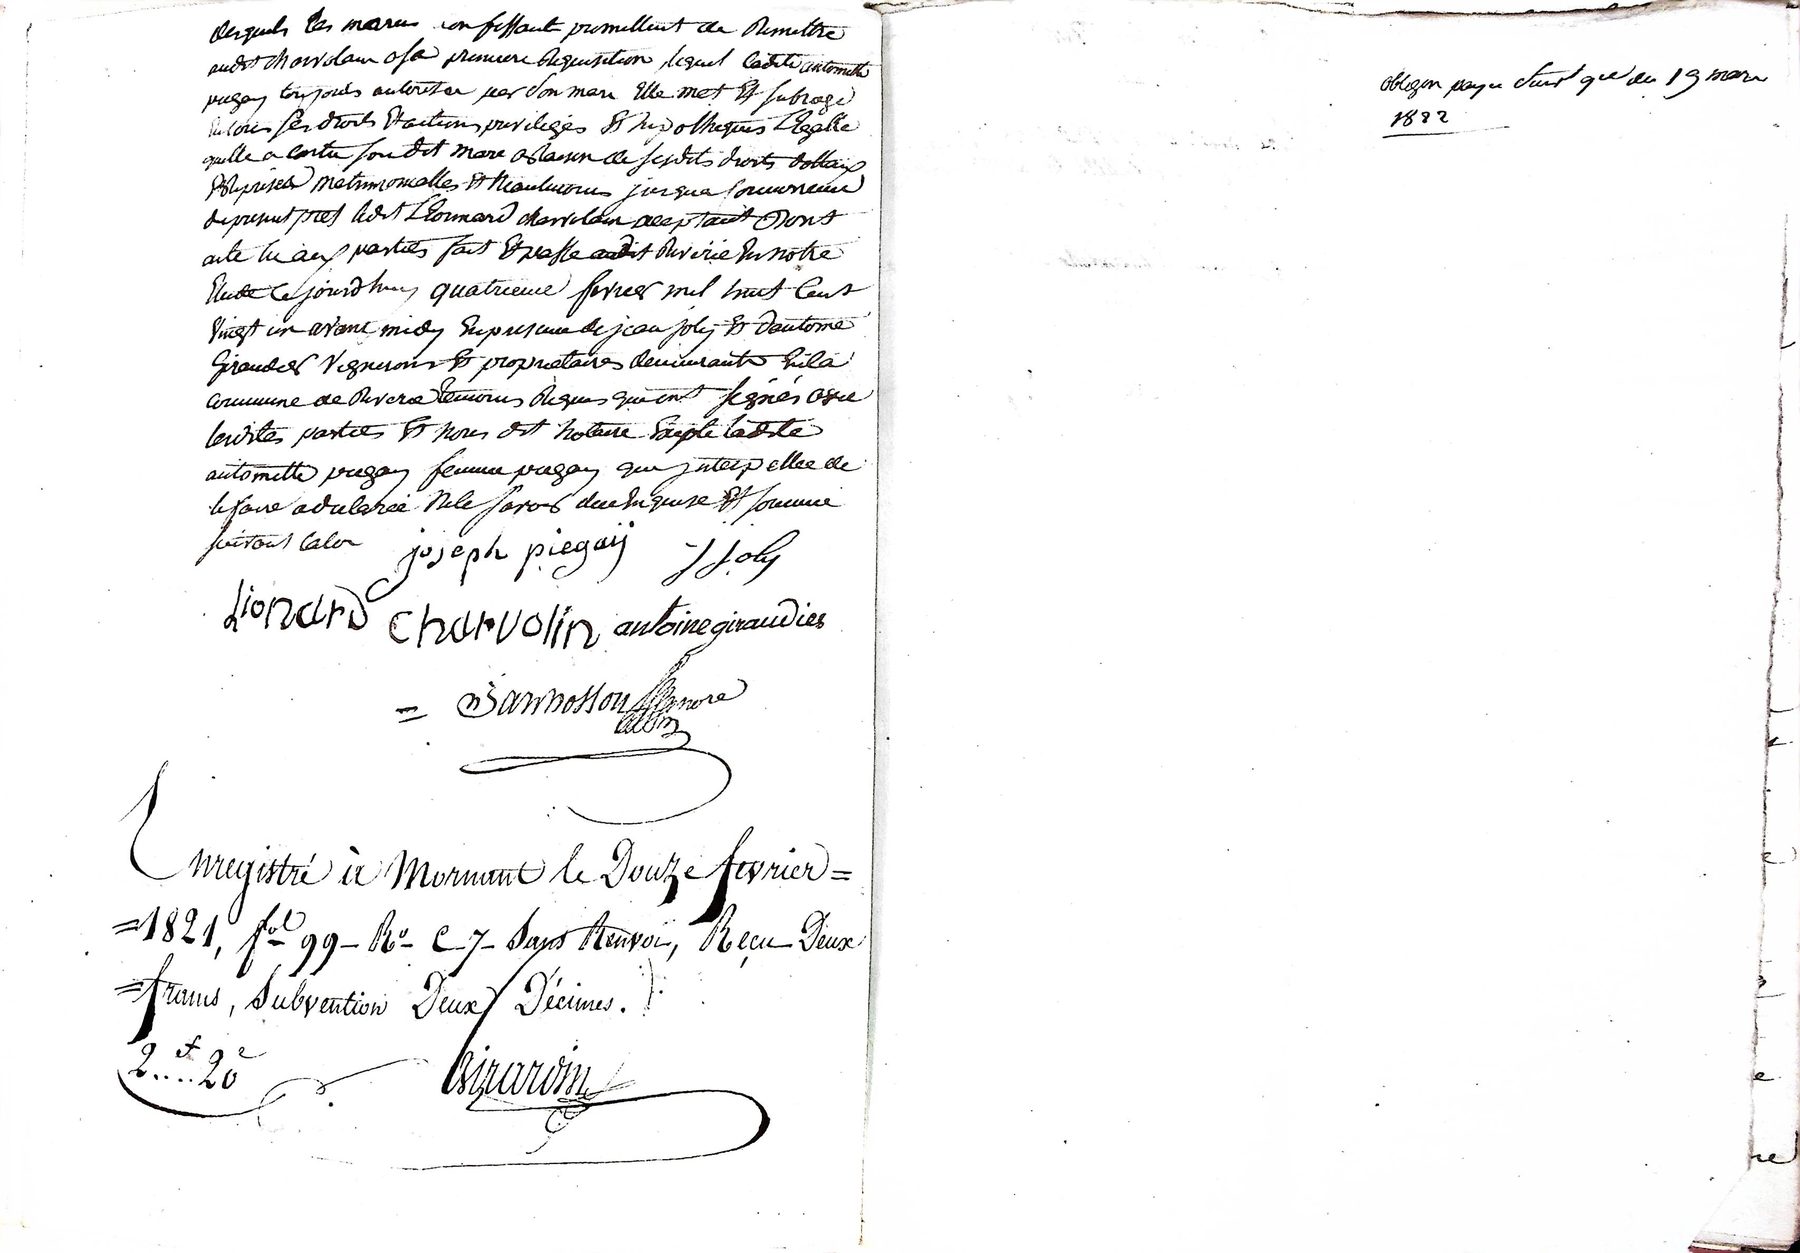 desquels les maries confessant promettent de Remettre
audit charvolain a sa premiere Requisition lequel ladite antomette
piegay toujours autorisee par Son mari Elle met Et subroge
En tous ses droits Et actions privileges Et hipotheques Legalle
quelle a contre son dit mari a Raison de sesdits droits dottaux
Et Reprises matrimonialles Et Neaulmoins jusqua Concurrance
du present pret ledit Lionnard charvolain aceptant Dont
acte lu aux parties fait Et passe audit Riverie En notre
Etude Ce jourdhuy quatrieme fevrier mil huit Cent
Vingt un avant midy En presance de jean joly Et dantoine
Giraudier Vignerons Et proprietaires demeurants En la
commune de Riverie temoins Requis qui ont signés avec
lesdites parties Et Nous dit Notaire Exepté ladite
antomette piegay femme piegay qui interpellee de
le faire a declaree Ne le savoir due Enquise Et sommee
suivant la loi joseph piegaÿ J Joly
Lionard charvolin antoine giraudier
= Bannosson Nore
Enregistré à Mornant le Douze fevrier =
= 1821, fol 99 - Ro - C 7 - Sans Renvoi, Reçu Deux
= francs, Subvention Deux Décimes.
2 f .... 20 c Girardin
obligon payee suivt qce du 19 mars
1822